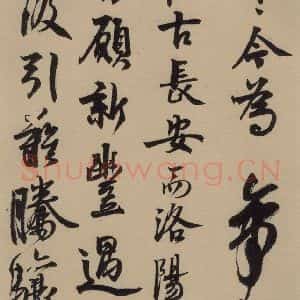 今為
古長安而洛陽
願新豐遇
引龍騰驤
Shufawang.CN